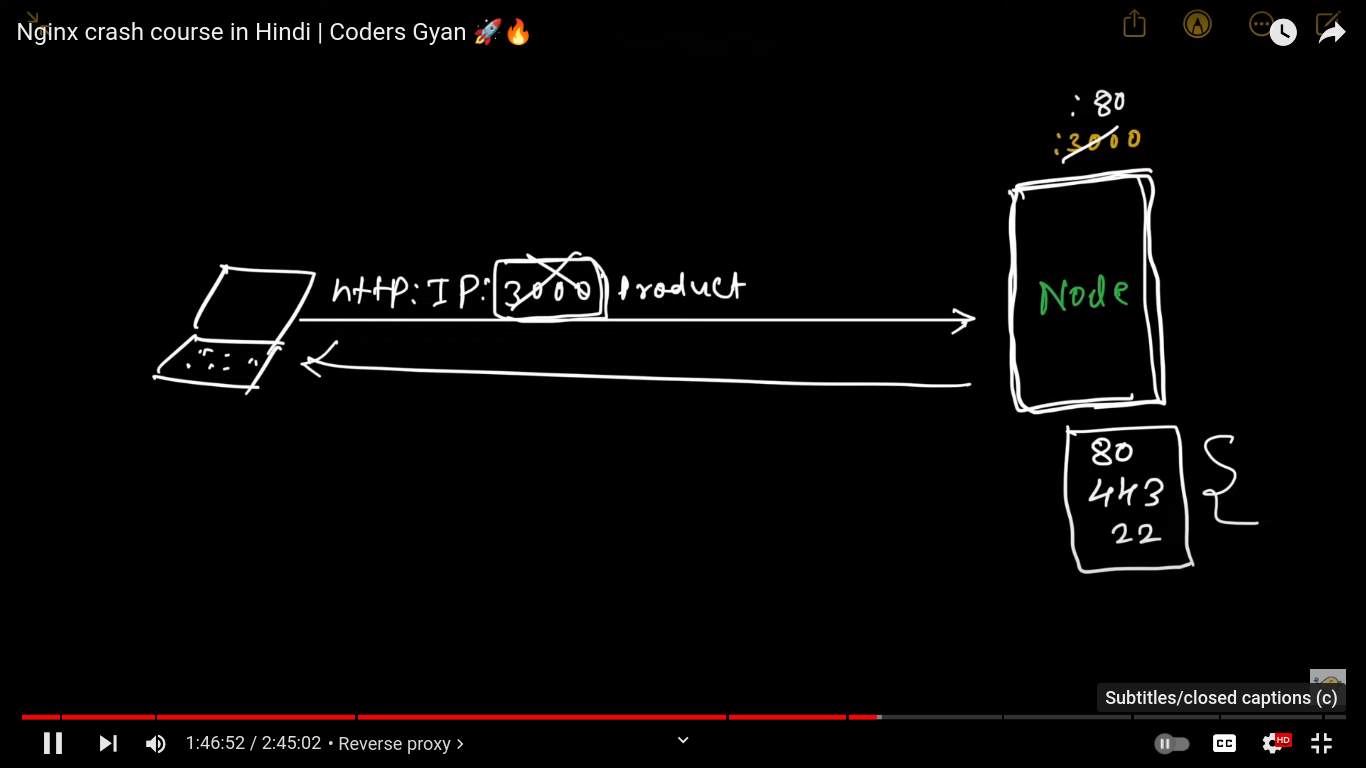 Nginx crash course in Hindi | Coders Gyan 🚀🔥
: 80
:3000
http:IP:3000 Product
Node
80
443
22
Subtitles/closed captions (c)
1:46:52 / 2:45:02 • Reverse proxy
CC
HD